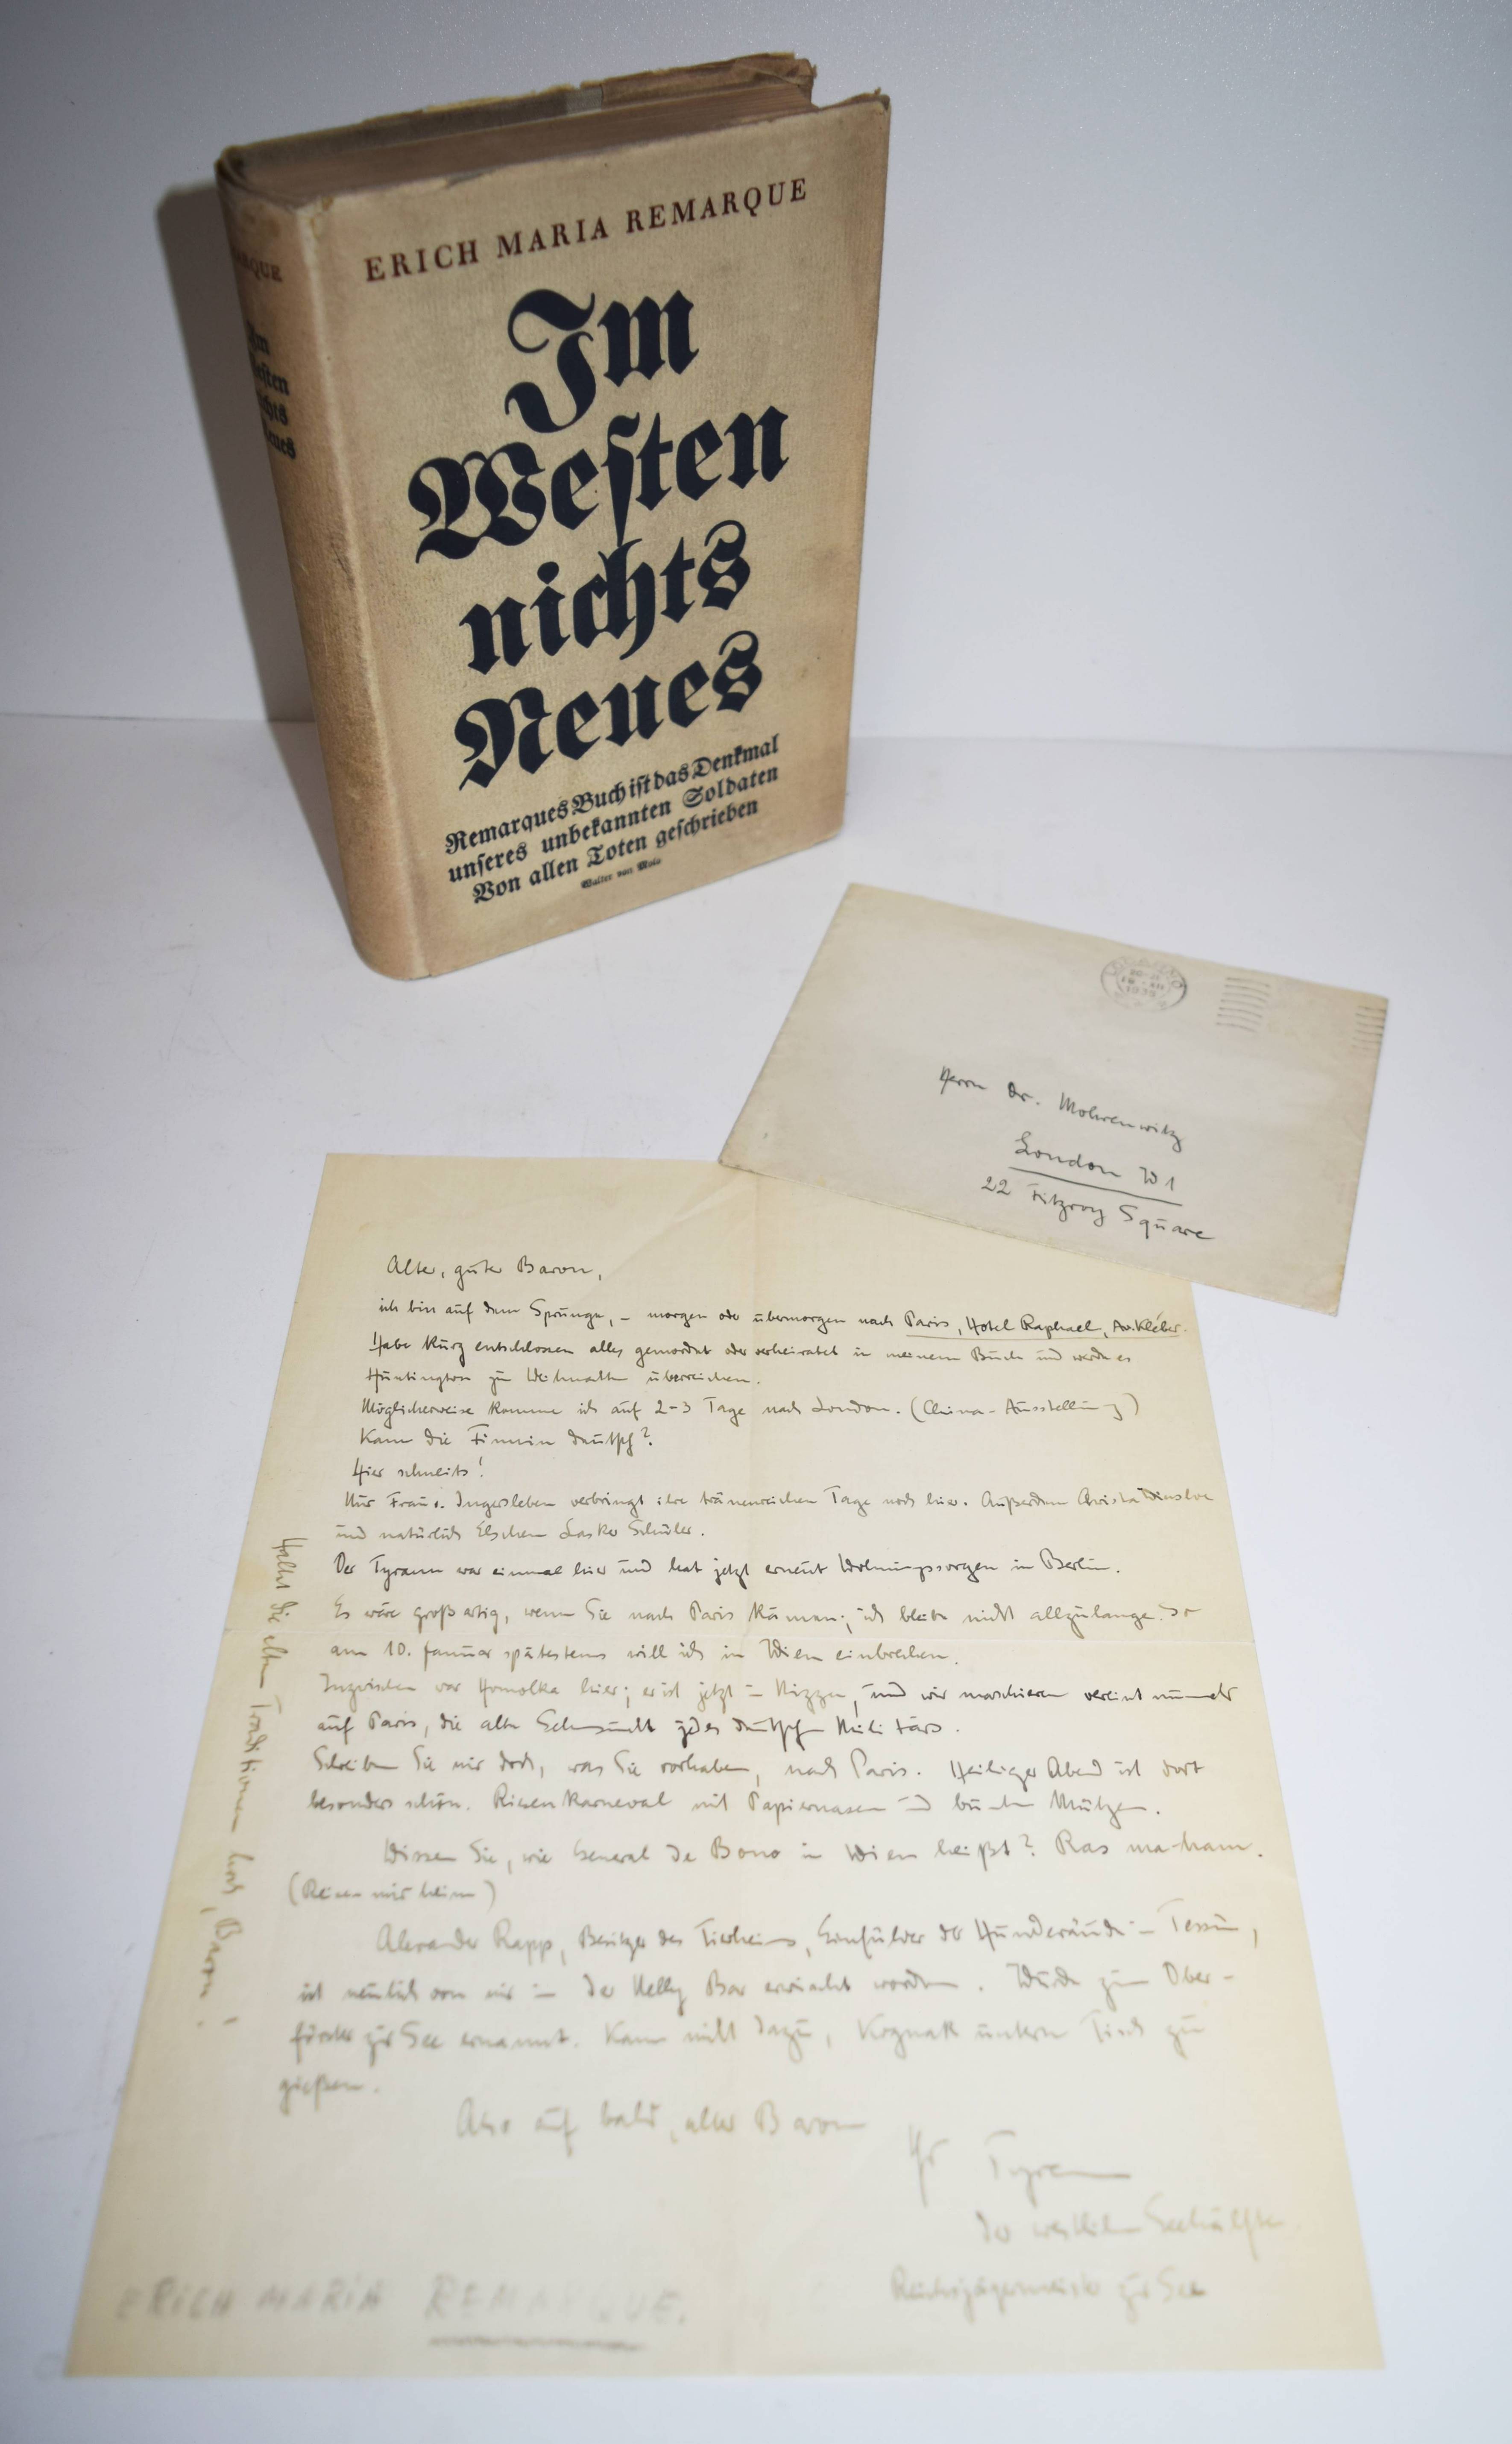 ERICH MARIA REMARQUE
Im
Westen
nichts
Neues
Remarques Buch ist das Denkmal
unseres unbekannten Soldaten
Von allen Toten geschrieben
Walter von Molo
ARQUE
Im
esten
ichts
eues
1935
Herrn Dr. Mohrenwitz
London W1
22 Fitzroy Square
Alter, guter Baron,
ich bin auf dem Sprunge, – morgen oder übermorgen nach Paris, Hotel Raphael, Av. Kléber.
Habe kurz entschlossen alles gemordet oder verheiratet in meinem Buch und werde es
Huntington zu Weihnachten überreichen.
Möglicherweise komme ich auf 2-3 Tage nach London. (China-Ausstellung)
Kann die Finnin deutsch?
Hier schneits!
Nur Frau v. Ingersleben verbringt ihre tränenreichen Tage noch hier. Außerdem Christa Winsloe
und natürlich Elschen Lasker Schüler.
Der Tyrann war einmal hier und hat jetzt erneut Wohnungssorgen in Berlin.
Es wäre großartig, wenn Sie nach Paris kämen; ich bleibe nicht allzulange. So
am 10. Januar spätestens will ich in Wien einbrechen.
Inzwischen war Homolka hier; er ist jetzt in Nizza, und wir marschieren vereint nunmehr
auf Paris, die alte Sehnsucht jedes deutschen Militärs.
Schreiben Sie mir doch, was Sie vorhaben, nach Paris. Heiliger Abend ist dort
besonders schön. Riesenkarneval mit Papiernasen und bunten Mützen.
Wissen Sie, wie General de Bono in Wien heißt? Ras ma-ham.
(Reisen mir heim)
Alexander Rapp, Besitzer des Tierheims, Einführer der Hunderäude in Tessin,
ist neulich von mir in der Nelly Bar erwischt worden. Wurde zum Ober-
förster zur See ernannt. Kam nicht dazu, Kognak untern Tisch zu
gießen.
Also auf bald, alter Baron
Ihr Tyrann
der westlichen Seehälfte
Reichsjägermeister zur See
Haltet die alten Traditionen hoch, Baron!
ERICH MARIA REMARQUE.